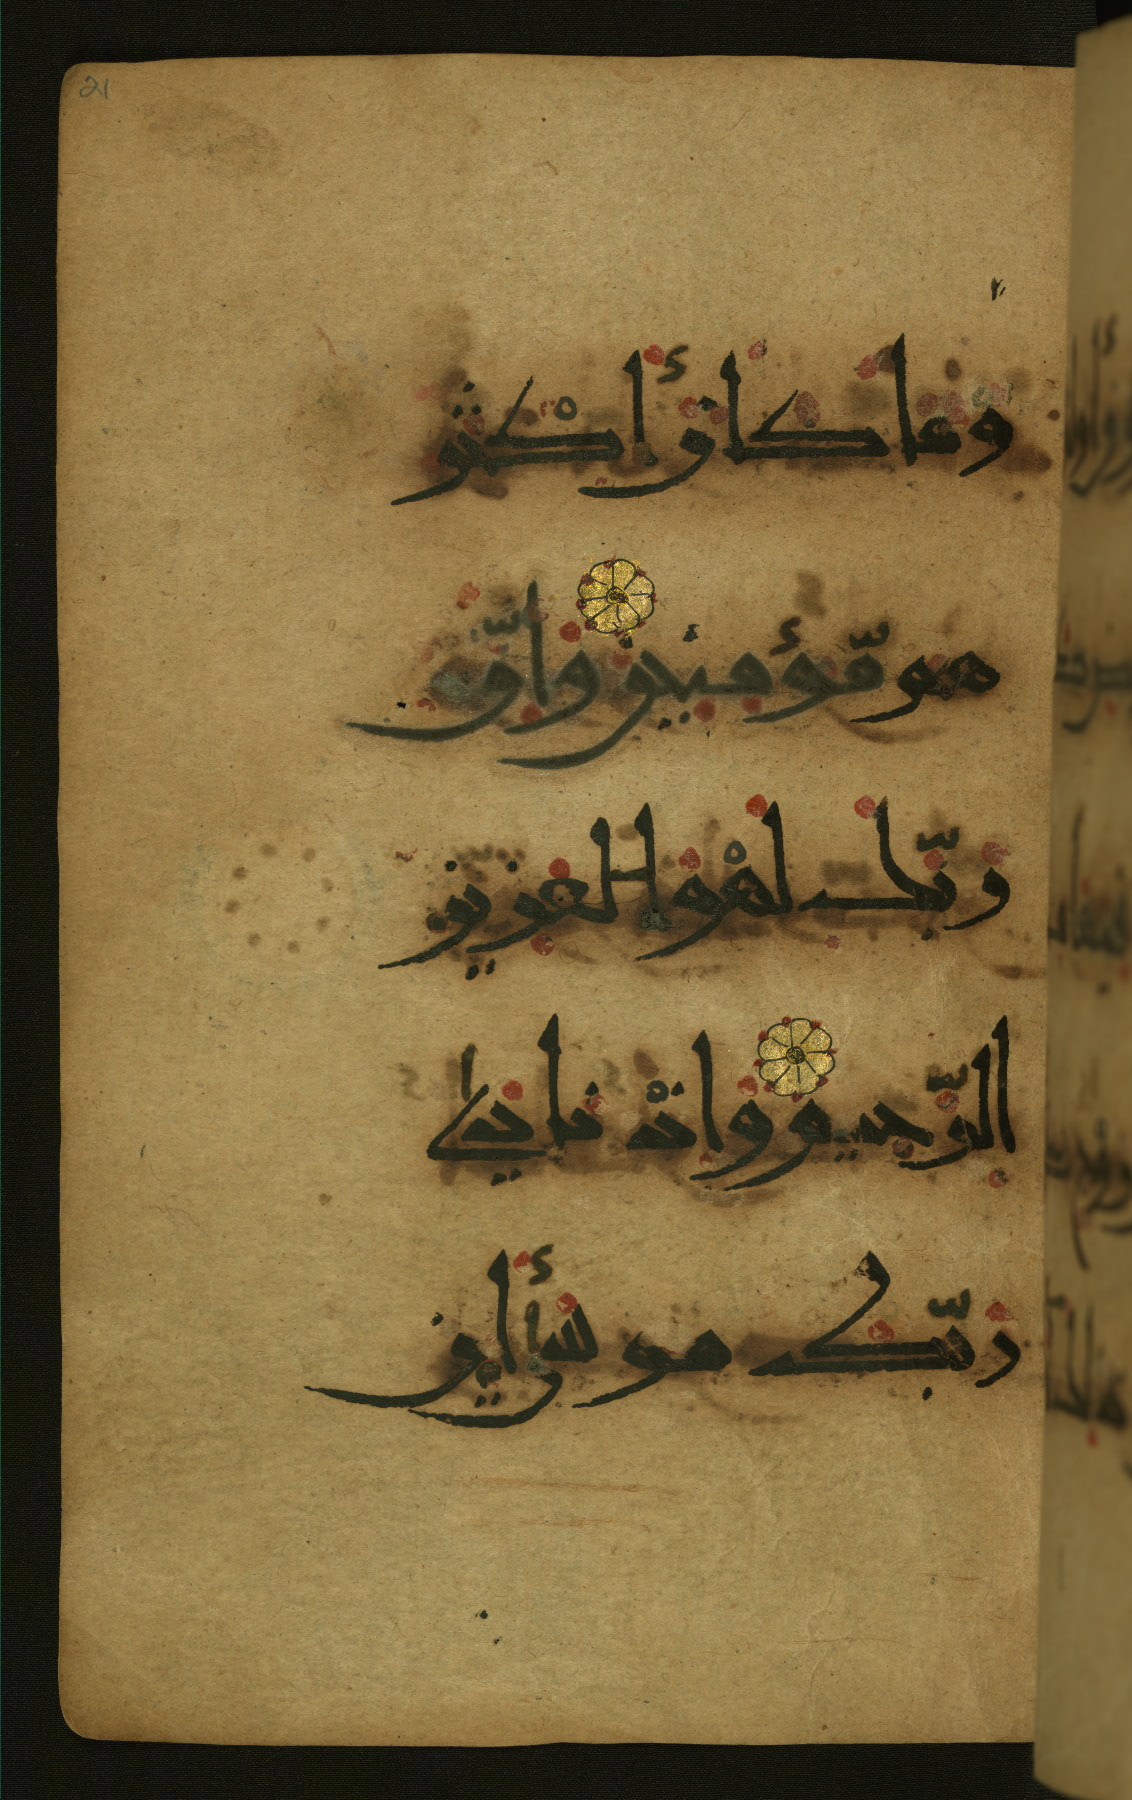 21
وما كان أكثر
هم مّؤمنين وإنّ
ربّك لهْو العزيز
الرّحيم وإذْ نادى
ربّك موسى أن